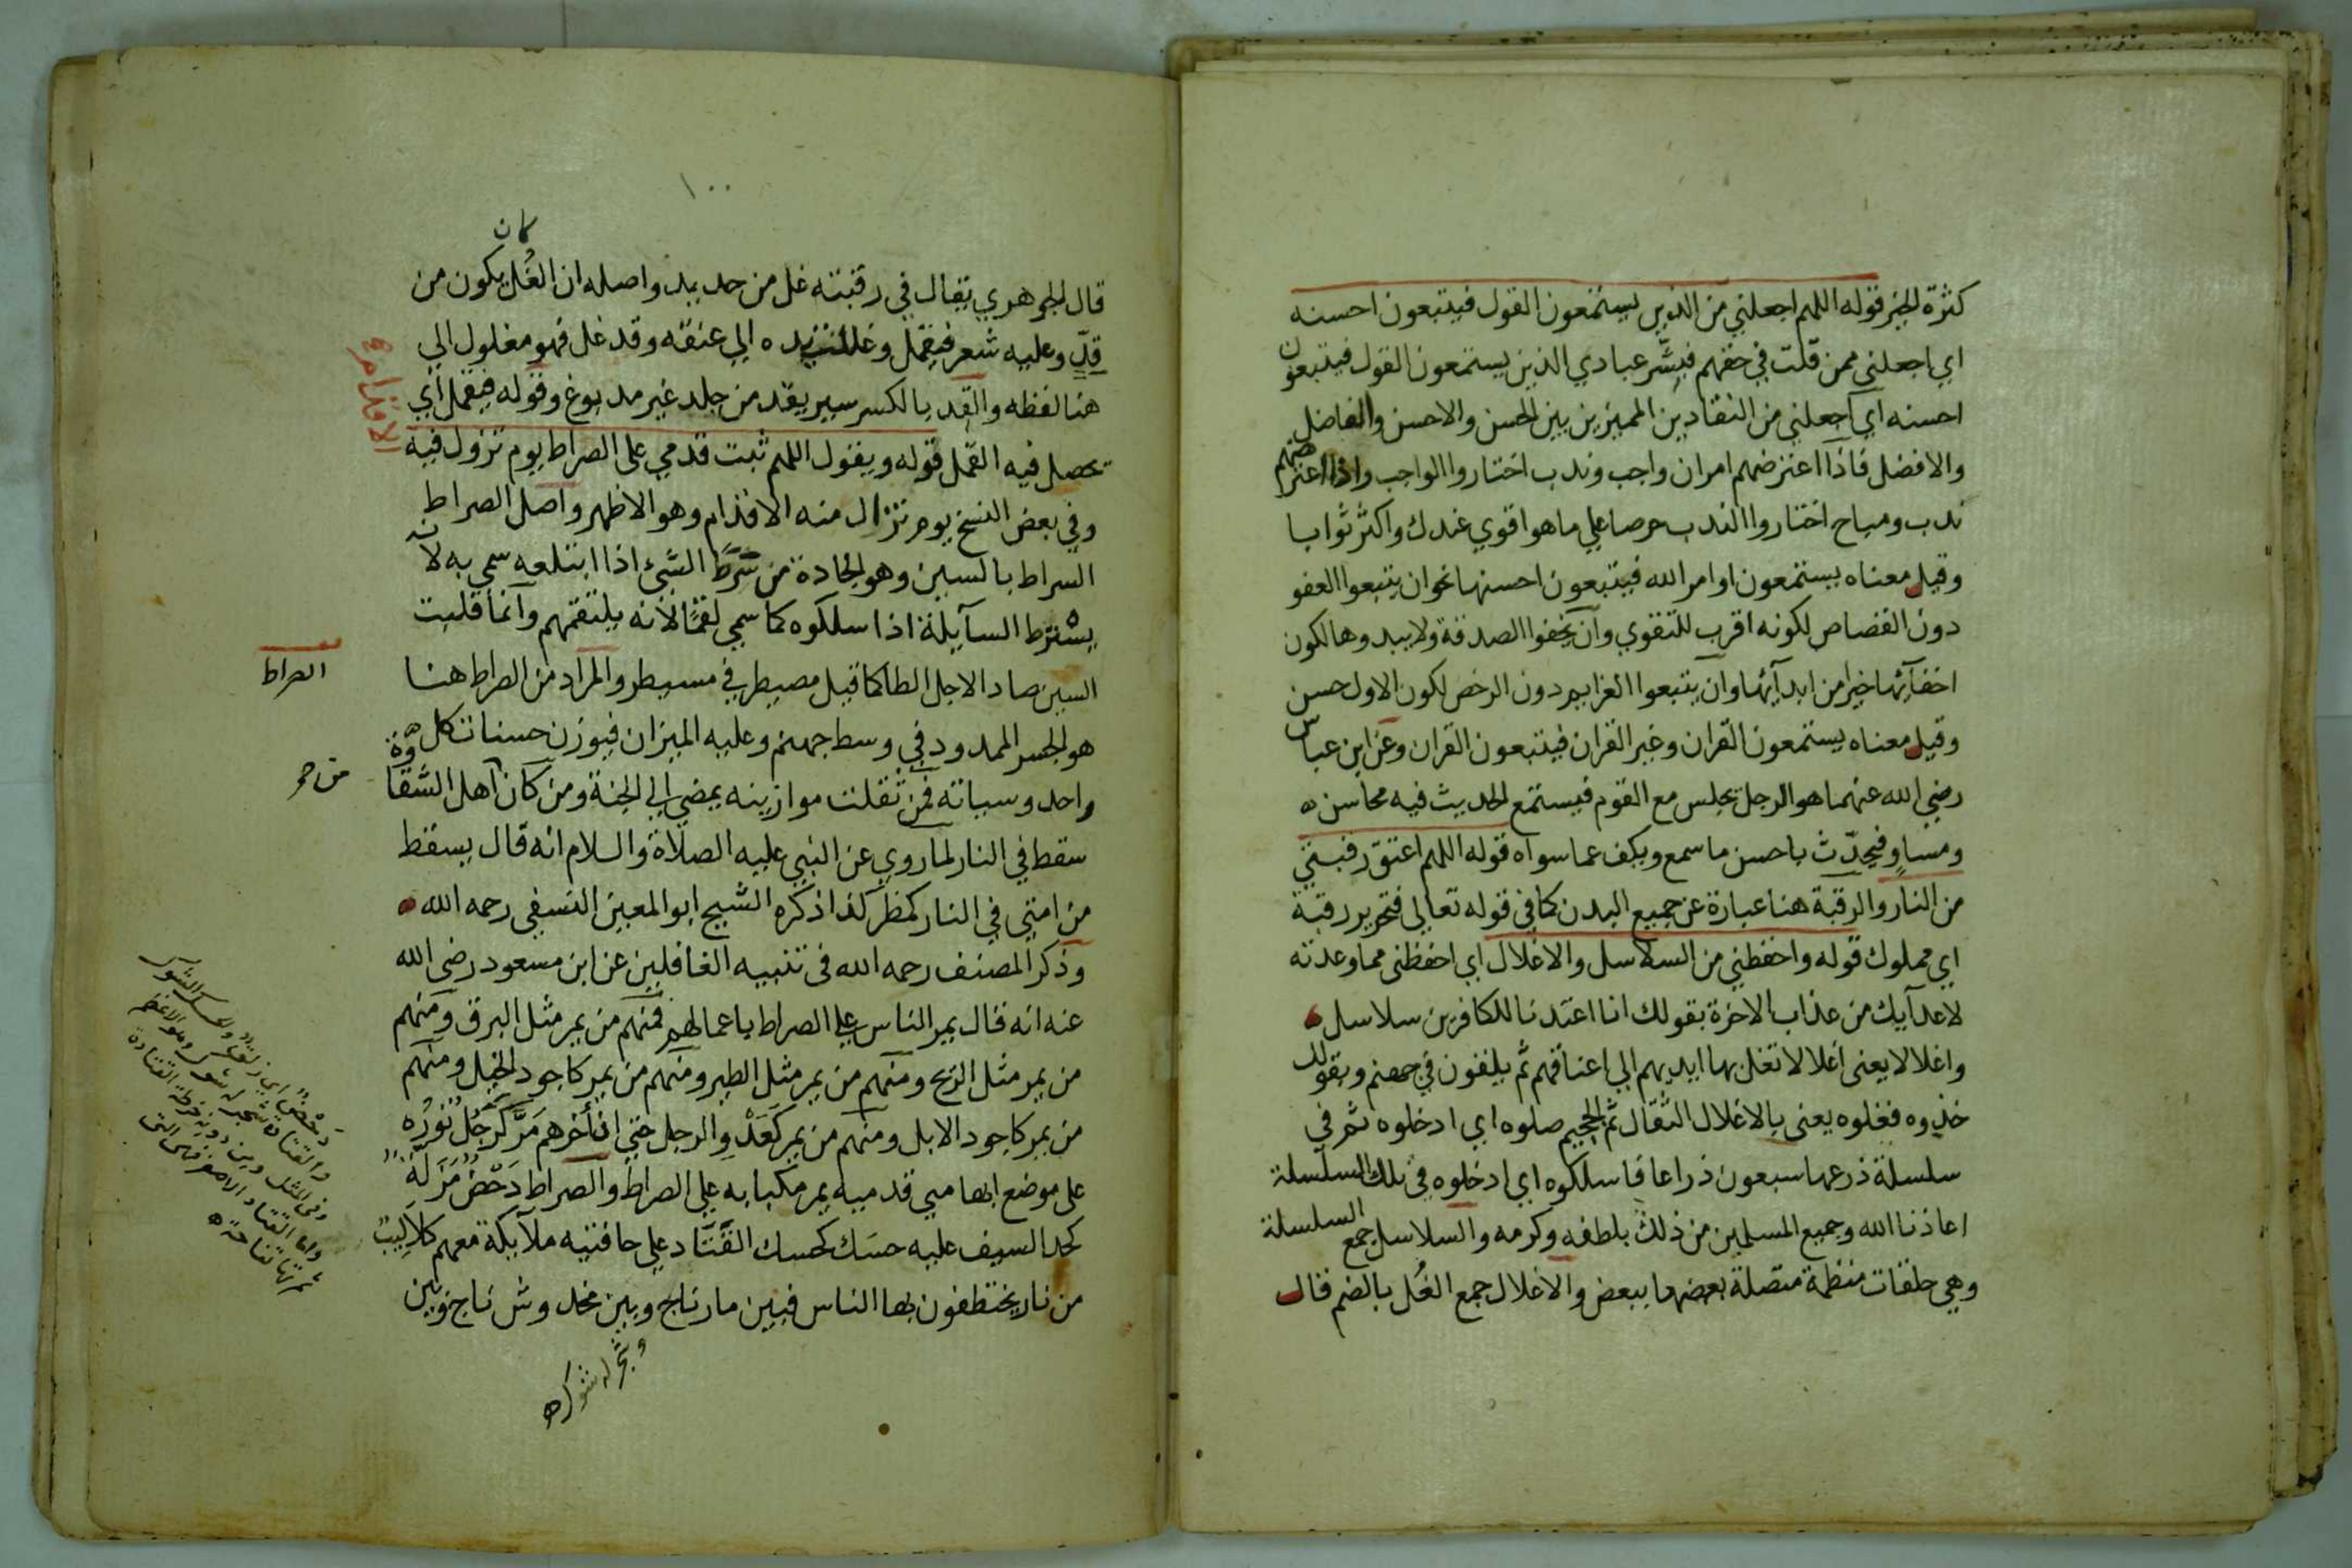 كثرة الخير قوله اللهم اجعلني من الذين يستمعون القول فيتبعون احسنه
اي اجعلني ممن قلت في حقهم فبشّر عبادي الذين يستمعون القول فيتبعون
احسنه اي اجعلني من النقادين المميزين بين الحسن والاحسن والفاضل
والافضل فاذا اعترضهم امران واجب وندب اختاروا الواجب واذا اعترضهم
ندب ومباح اختاروا الندب حرصا علي ما هو اقوي عندك واكثر ثوابا
وقيل معناه يستمعون اوامر الله فيتبعون احسنها نحو ان يتبعوا العفو
دون القصاص لكونه اقرب للتقوي وان يخفوا الصدقة ولا يبدوها لكون
اخفآئها خيرا من ابدآئها وان يتبعوا العزايم دون الرخص لكون الاول حسن
وقيل معناه يستمعون القران وغير القران فيتبعون القران وعن ابن عباس
رضي الله عنهما هو الرجل يجلس مع القوم فيستمع الحديث فيه محاسن
ومساوٍ فيحدّث باحسن ما سمع ويكف عما سواه قوله اللهم اعتق رقبتي
من النار والرقبة هنا عبارة عن جميع البدن كما في قوله تعالي فتحرير رقبة
اي مملوك قوله واحفظني من السلاسل والاغلال اي احفظني مما وعدته
لاعدآيك من عذاب الاخرة بقولك انا اعتدنا للكافرين سلاسل
واغلالا يعني اغلالا تغل بها ايديهم الي اعناقهم ثم يلقون في جهنم وبقولك
خذوه فغلوه يعني بالاغلال الثقال ثم الجحيم صلوه اي ادخلوه ثم في
سلسلة ذرعها سبعون ذراعا فاسلكوه اي ادخلوه في تلك السلسلة
اعاذنا الله وجميع المسلمين من ذلك بلطفه وكرمه والسلاسل جمع السلسلة
وهي حلقات منظمة متصلة بعضها ببعض والاغلال جمع الغُل بالضم قال
١٠٠
كان
قال الجوهري يقال في رقبته غل من حديد واصله ان الغُل يكون من
قِدٍّ وعليه شعر فيقمل وغللت يده الي عنقه وقد غل فهو مغلول الي
هنا لفظه والقد بالكسر سير يقد من جلد غير مدبوغ وقوله فيقمل اي
تحصل فيه القمل قوله ويقول اللهم ثبت قدمي علي الصراط يوم تزول فيه
وفي بعض النسخ يوم تزال منه الاقدام وهو الاظهر واصل الصراط
السراط بالسين وهو الجادة من سَرَطَ الشيء اذا ابتلعه سمي به لانه
يسْترط السآيلة اذا سلكوه كما سمي لقمًا لانه يلتقمهم وانما قلبت
السين صادا لاجل الطا كما قيل مصيطر في مسيطر والمراد من الصراط هنا
هو الجسر الممدود في وسط جهنم وعليه الميزان فيوزن حسنات كل
واحد وسياته فمن ثقلت موازينه يمضي الي الجنة ومن كان اهل الشقاوة
سقط في النار لما روي عن النبي عليه الصلاة والسلام انه قال يسقط
من امتي في النار كمطر كذا ذكره الشيخ ابو المعين النسفي رحمه الله
وذكر المصنف رحمه الله في تنبيه الغافلين عن ابن مسعود رضى الله
عنه انه قال يمر الناس علي الصراط باعمالهم فمنهم من يمر مثل البرق ومنهم
من يمر مثل الريح ومنهم من يمر مثل الطير ومنهم من يمر كاجود الخيل ومنهم
من يمر كاجود الابل ومنهم من يمر كَعَدْوِ الرجل حتي ان أخرهم مَرَّ كرَجُل نُورُه
علي موضع ابهامي قدميه يمر مكبا به علي الصراط والصراط دَحْضٌ مَزَلَةٌ
كحد السيف عليه حسَك كحسك القَتَاد علي حافتيه ملآيكة معهم كلاليب
من نار يختطفون بها الناس فبين مار ناج وبين مخدوش ناج وبين
الاقدام
الصراط
دَحْضٌ اي زلق والحسك الشوك
والقتاد شجر له شوك وهو الاعظم
وفي المثل من دونه خرط القتادة
واما القتاد الاصغر فهي التي
ثمرتها نفاخة